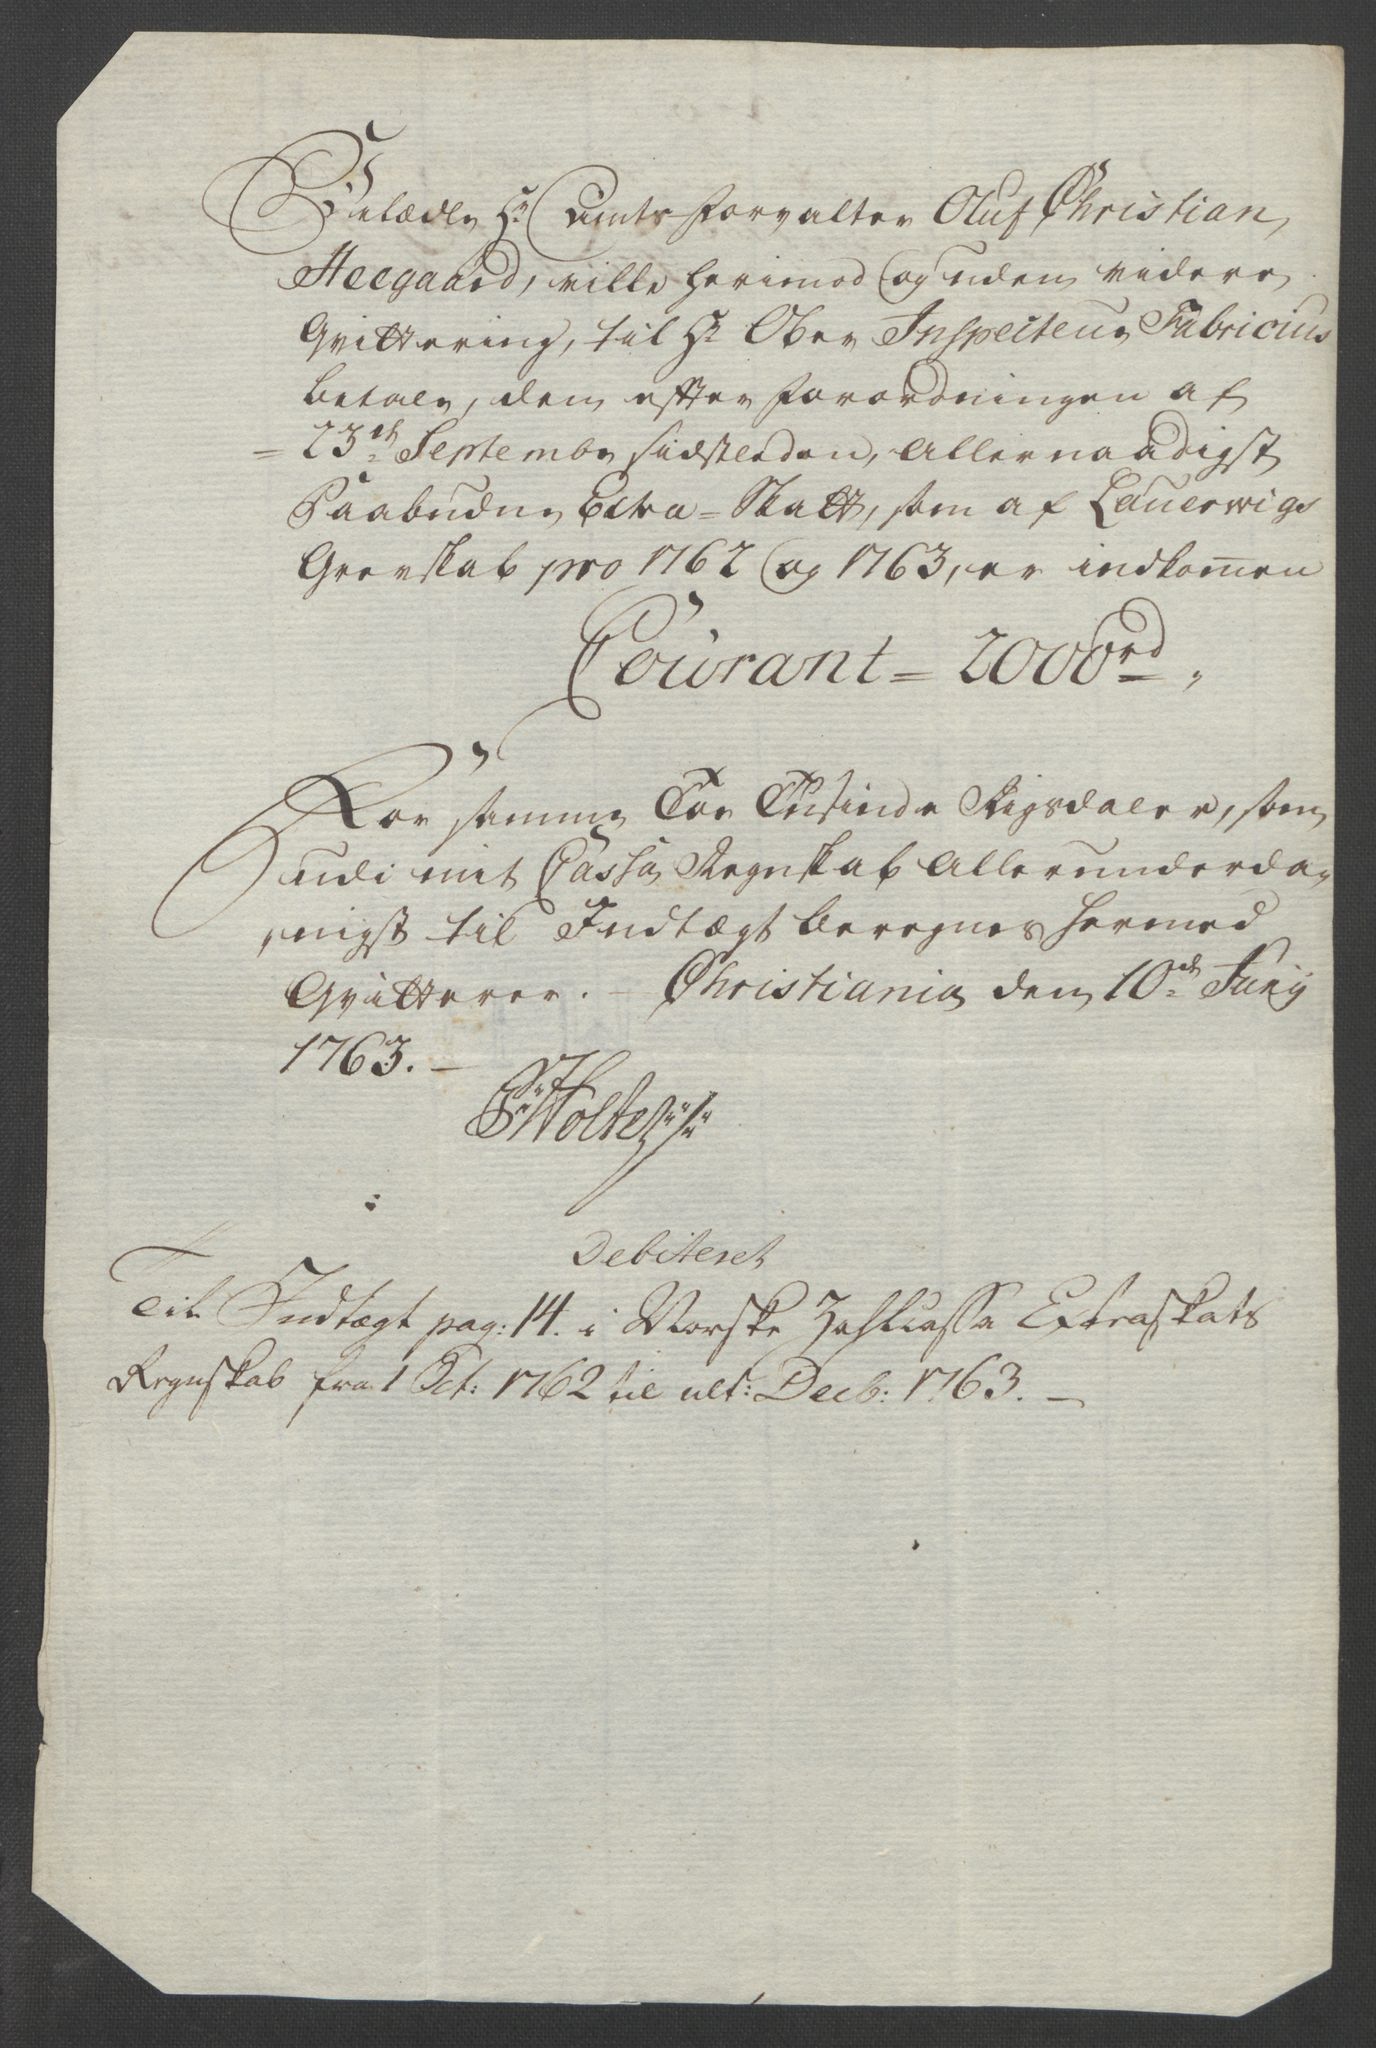 Velædle Hr Amts forvalter Oluf Christian
Heegaard, ville herimod og uden videre
Qvittering, til Hr Ober Inspecteur Fabricius
betale, den efter forordningen af
= 23de Septembr sidstleden, allernaadigst
Paabudne Extra = Skatt, som af Lauerwigs
Grevskab pro 1762 og 1763, er indkom̅en
Courant = 2000rd,
For samme Toe Tusinde Rigsdaler, som
udi mit Cassa Regnskab allerunderda-
nigst til Indtægt beregnes hermed
Qvitterer. – Christiania den 10de Junij
1763. –
Holte
Debiteret
Til Indtægt pag: 14. i Norske Zahlcassa Extraskats
Regnskab fra 1 Oct: 1762 til ult: Decb: 1763. –